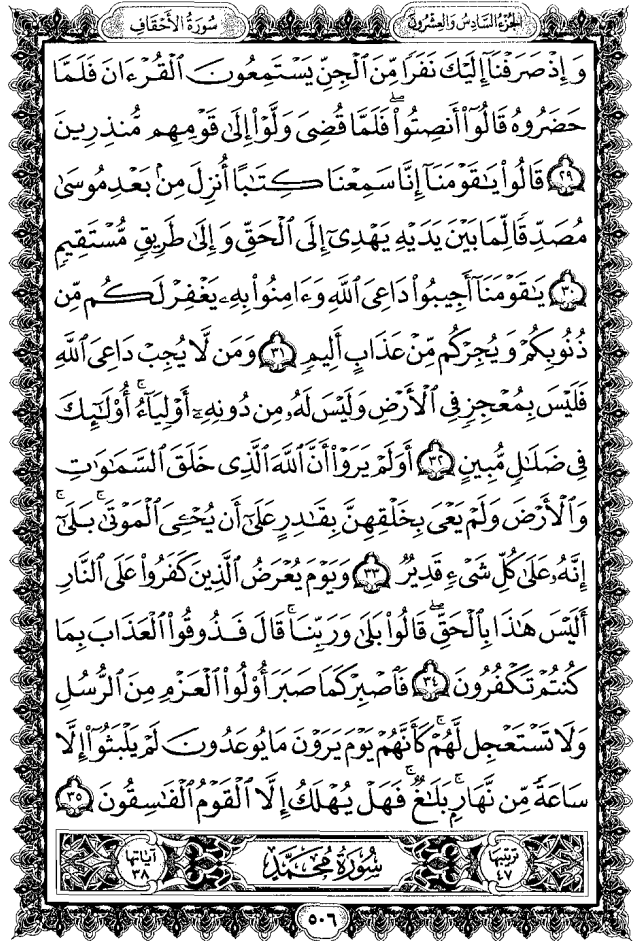 الجزء السادس والعشرون
سورة الأحقاف
وَإِذْ صَرَفْنَآ إِلَيْكَ نَفَرًا مِّنَ ٱلْجِنِّ يَسْتَمِعُونَ ٱلْقُرْءَانَ فَلَمَّا
حَضَرُوهُ قَالُوٓا۟ أَنصِتُوا۟ۖ فَلَمَّا قُضِىَ وَلَّوْا۟ إِلَىٰ قَوْمِهِم مُّنذِرِينَ
٢٩ قَالُوا۟ يَٰقَوْمَنَآ إِنَّا سَمِعْنَا كِتَٰبًا أُنزِلَ مِنۢ بَعْدِ مُوسَىٰ
مُصَدِّقًا لِّمَا بَيْنَ يَدَيْهِ يَهْدِىٓ إِلَى ٱلْحَقِّ وَإِلَىٰ طَرِيقٍ مُّسْتَقِيمٍ
٣٠ يَٰقَوْمَنَآ أَجِيبُوا۟ دَاعِىَ ٱللَّهِ وَءَامِنُوا۟ بِهِۦ يَغْفِرْ لَكُم مِّن
ذُنُوبِكُمْ وَيُجِرْكُم مِّنْ عَذَابٍ أَلِيمٍ ٣١ وَمَن لَّا يُجِبْ دَاعِىَ ٱللَّهِ
فَلَيْسَ بِمُعْجِزٍ فِى ٱلْأَرْضِ وَلَيْسَ لَهُۥ مِن دُونِهِۦٓ أَوْلِيَآءُۚ أُو۟لَٰٓئِكَ
فِى ضَلَٰلٍ مُّبِينٍ ٣٢ أَوَلَمْ يَرَوْا۟ أَنَّ ٱللَّهَ ٱلَّذِى خَلَقَ ٱلسَّمَٰوَٰتِ
وَٱلْأَرْضَ وَلَمْ يَعْىَ بِخَلْقِهِنَّ بِقَٰدِرٍ عَلَىٰٓ أَن يُحْـِۧىَ ٱلْمَوْتَىٰۚ بَلَىٰٓ
إِنَّهُۥ عَلَىٰ كُلِّ شَىْءٍ قَدِيرٌ ٣٣ وَيَوْمَ يُعْرَضُ ٱلَّذِينَ كَفَرُوا۟ عَلَى ٱلنَّارِ
أَلَيْسَ هَٰذَا بِٱلْحَقِّۖ قَالُوا۟ بَلَىٰ وَرَبِّنَاۚ قَالَ فَذُوقُوا۟ ٱلْعَذَابَ بِمَا
كُنتُمْ تَكْفُرُونَ ٣٤ فَٱصْبِرْ كَمَا صَبَرَ أُو۟لُوا۟ ٱلْعَزْمِ مِنَ ٱلرُّسُلِ
وَلَا تَسْتَعْجِل لَّهُمْۚ كَأَنَّهُمْ يَوْمَ يَرَوْنَ مَا يُوعَدُونَ لَمْ يَلْبَثُوٓا۟ إِلَّا
سَاعَةً مِّن نَّهَارٍۭۚ بَلَٰغٌۚ فَهَلْ يُهْلَكُ إِلَّا ٱلْقَوْمُ ٱلْفَٰسِقُونَ ٣٥
ترتيبها ٤٧
سورة محمد
آياتها ٣٨
٥٠٦